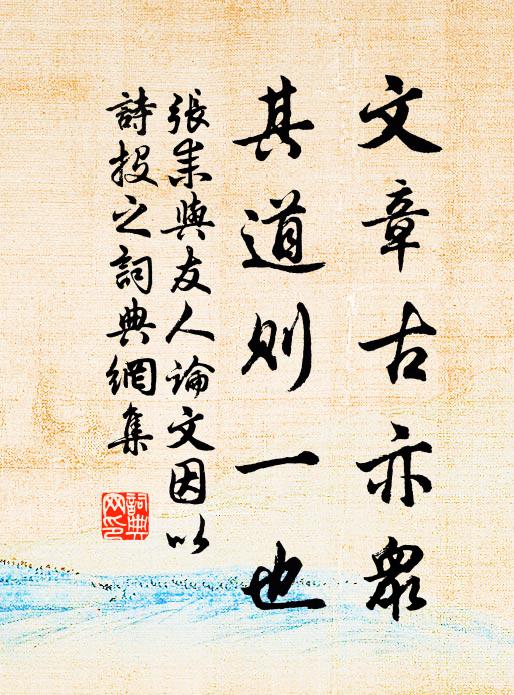 文章古亦眾
其道則一也
張耒與友人論文因以
詩投之詞典網集
詞典
网印